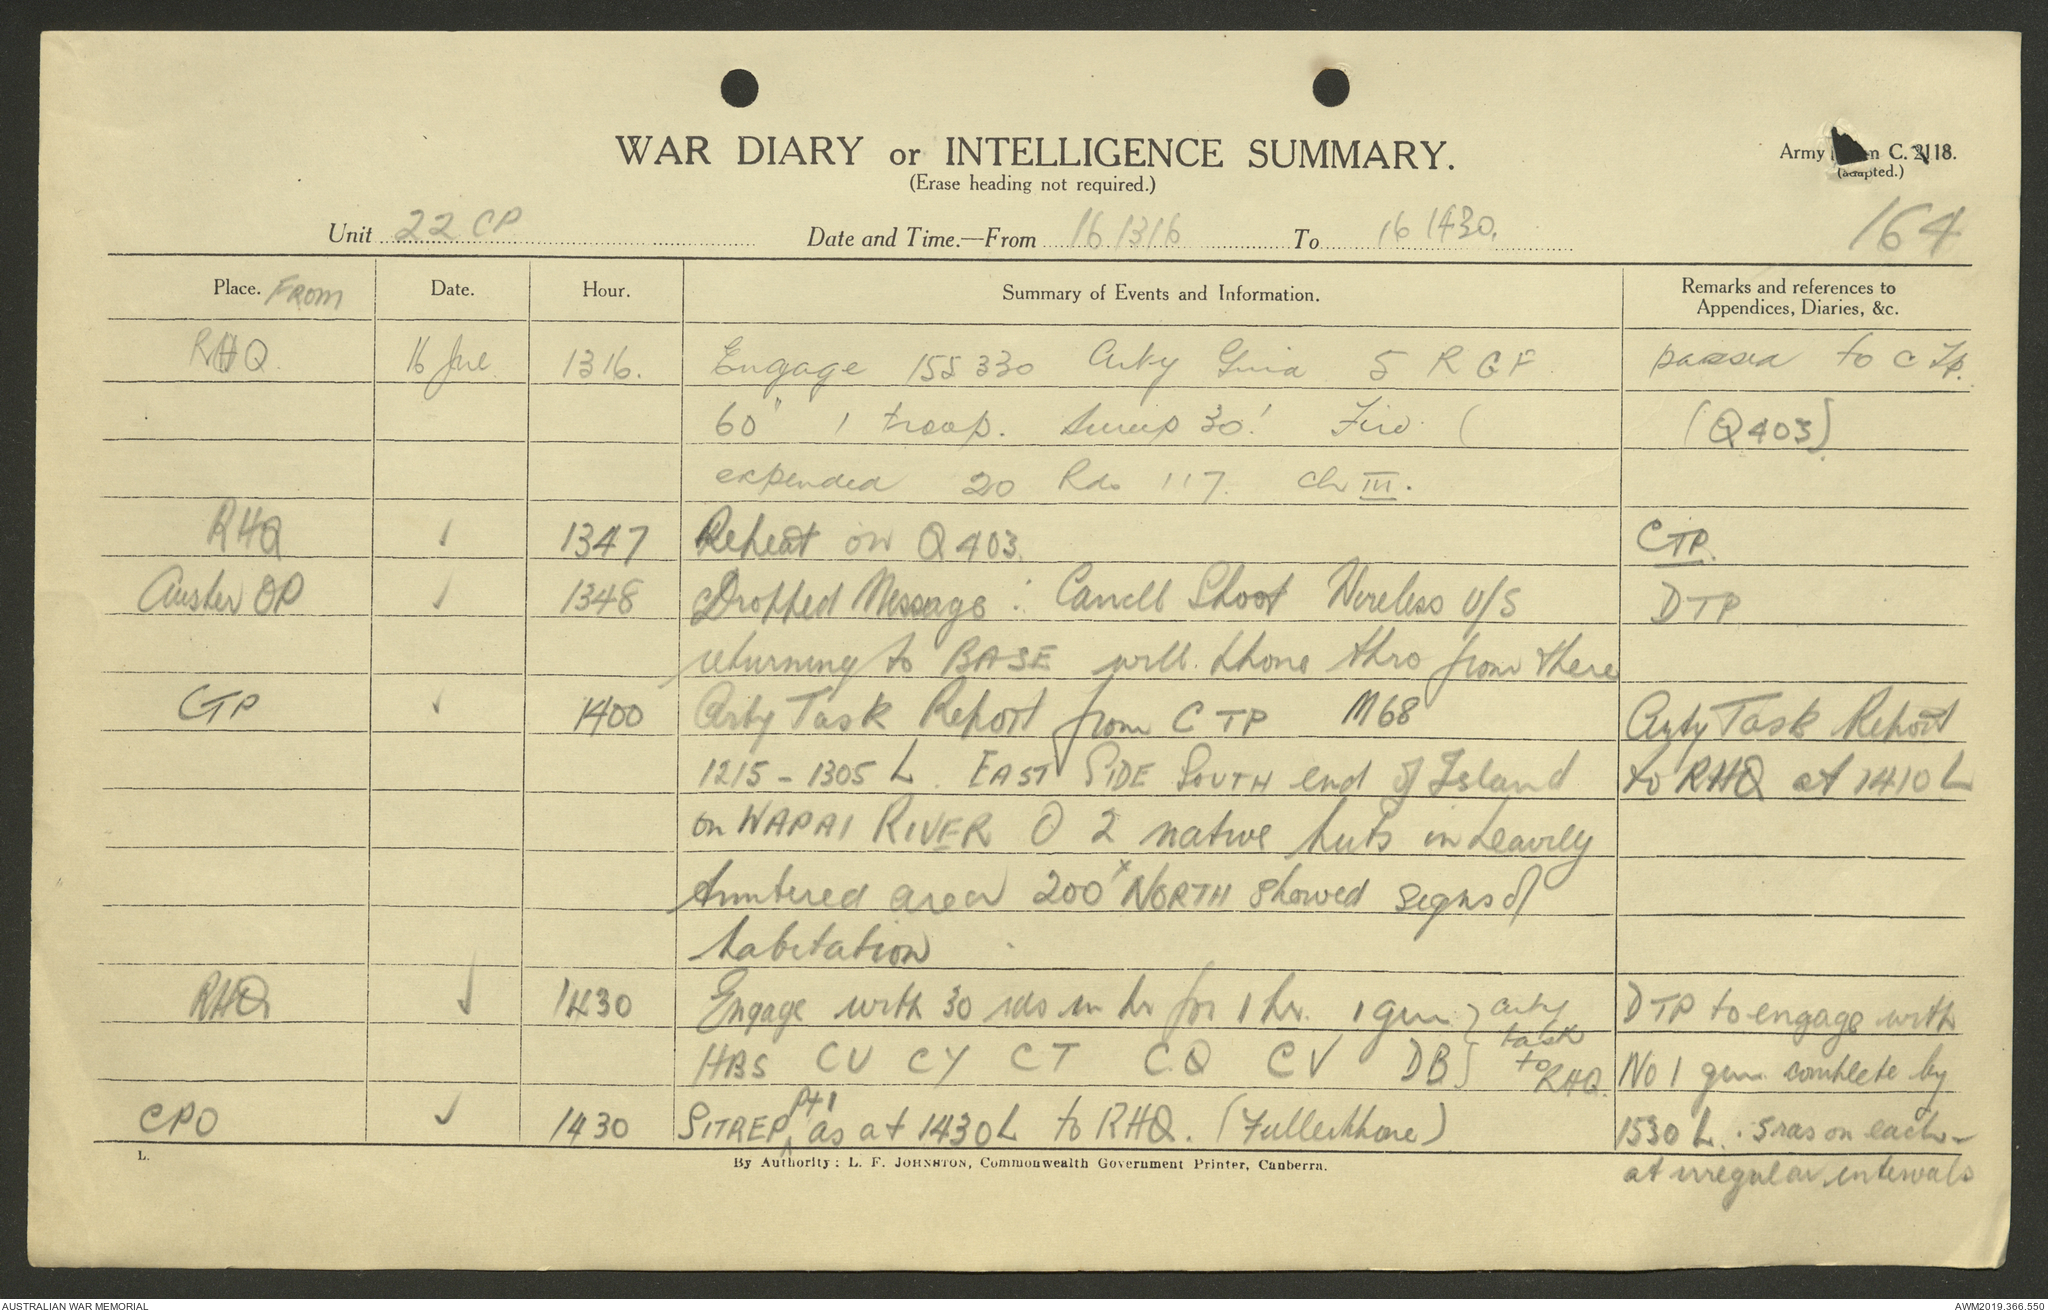 WAR DIARY or INTELLIGENCE SUMMARY.
(Erase heading not required.)
Army Form C. 2118.
(adapted.)
164
Unit 22 CP Date and Time.—From 16 1316 To 16 1430.
Place. FROM Date. Hour. Summary of Events and Information. Remarks and references to Appendices, Diaries, &c.
RHQ 16 Jne 1316. Engage 155330 Arty 5 R G F passed to C Tp.
60" 1 troop. Sweep 30' Fire ( (Q403)
expended 20 Rds 117. Ch III.
RHQ ✓ 1347 Repeat on Q403. CTP.
Auster OP ✓ 1348 Dropped Message : Cancel Shoot Wireless U/S DTP
returning to BASE will phone thro from there
CTP ✓ 1400 Arty Task Report from C TP M68 Arty Task Report
1215 - 1305 L. EAST SIDE SOUTH end of Island to RHQ at 1410 L
on WAPAI RIVER O 2 native huts in heavily
timbered area 200x NORTH showed signs of
habitation.
RHQ ✓ 1430 Engage with 30 rds in hr for 1 hr. 1 gun } arty task to RHQ. DTP to engage with
HBS CU CY CT CQ CV DB } No 1 gun complete by
CPO ✓ 1430 SITREP pt 1 as at 1430L to RHQ. (Fullerphone) 1530 L. 5 rds on each
at irregular intervals
L.
By Authority: L. F. JOHNSTON, Commonwealth Government Printer, Canberra.
AUSTRALIAN WAR MEMORIAL
AWM2019.366.550